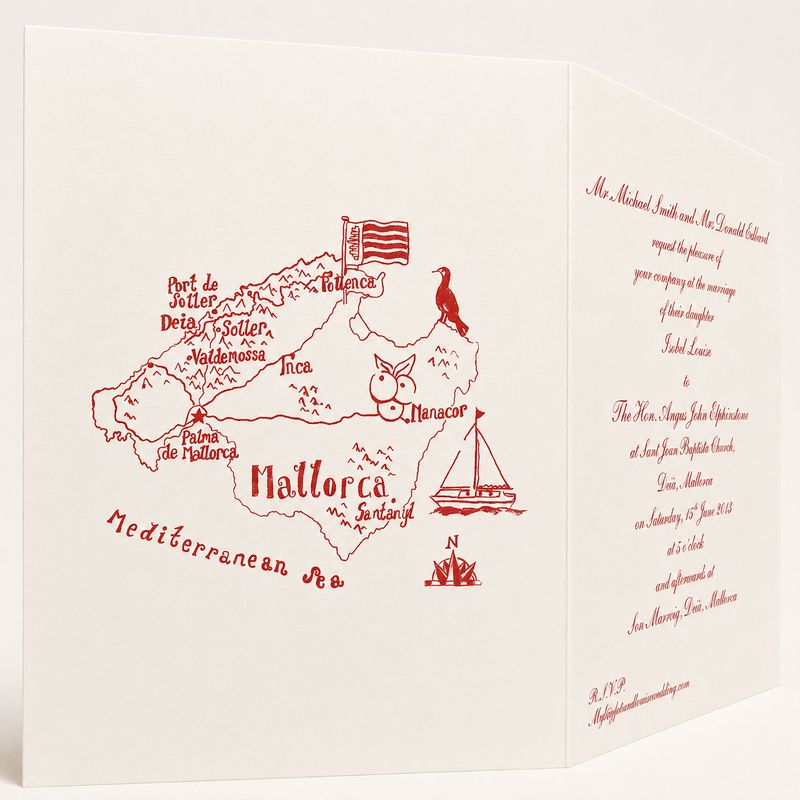 Port de
Soller
Pollenca
Deia
Soller
Valdemossa
Inca
Manacor
Palma
de Mallorca
Mallorca
Santanyi
Mediterranean Sea
N
Mr. Michael Smith and Mrs Donald Edbard
request the pleasure of
your company at the marriage
of their daughter
Isobel Louise
to
The Hon. Angus John Elphinstone
at Sant Joan Baptista Church,
Deià, Mallorca
on Saturday, 15th June 2013
at 5 o'clock
and afterwards at
Son Marroig, Deià, Mallorca
R.S.V.P.